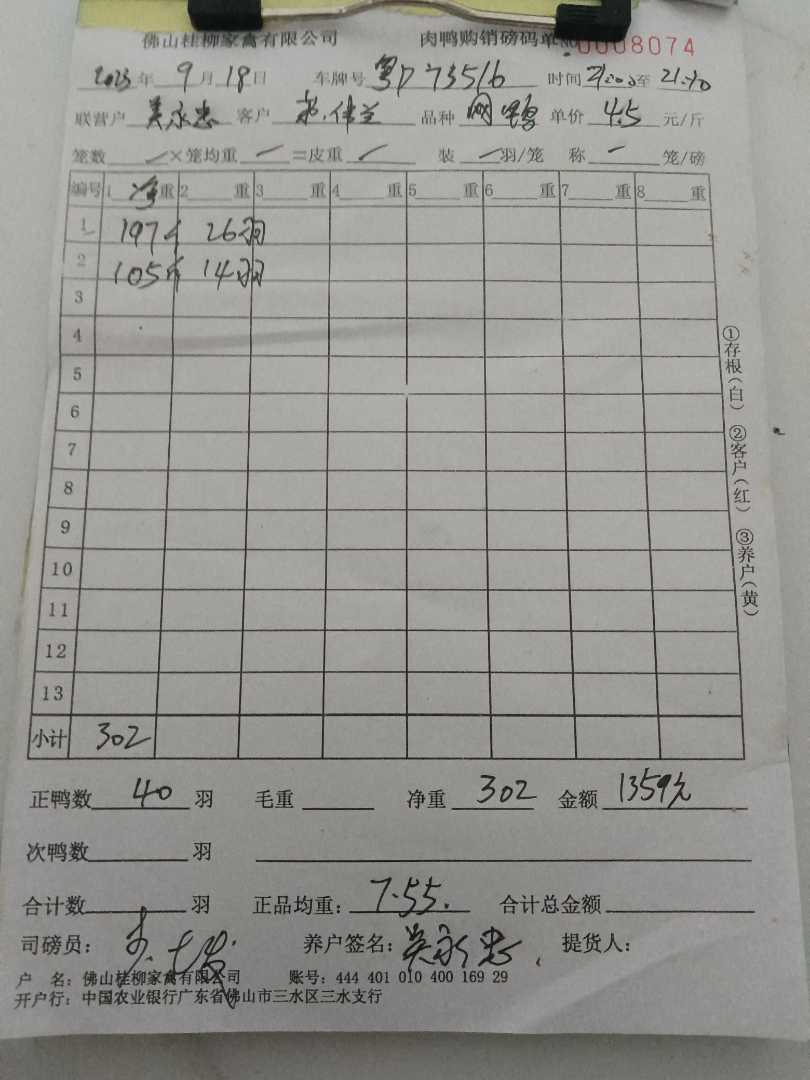 佛山桂柳家禽有限公司 肉鸭购销磅码单 No 0008074
2023年 9月 18日 车牌号 粤D73516 时间 21:00至 21:10
联营户 吴永忠 客户 品种 鸭 单价 4.5 元/斤
笼数 ×笼均重 =皮重 装 羽/笼 称 笼/磅
编号 1 净重 2 重 3 重 4 重 5 重 6 重 7 重 8 重
1 197斤 26羽
2 105斤 14羽
3
4
5
6
7
8
9
10
11
12
13
小计 302
正鸭数 40 羽 毛重 净重 302 金额 1359元
次鸭数 羽
合计数 羽 正品均重: 7.55. 合计总金额
司磅员: 养户签名: 吴永忠 提货人:
户 名: 佛山桂柳家禽有限公司 账号: 444 401 010 400 169 29
开户行: 中国农业银行广东省佛山市三水区三水支行
①存根(白) ②客户(红) ③养户(黄)